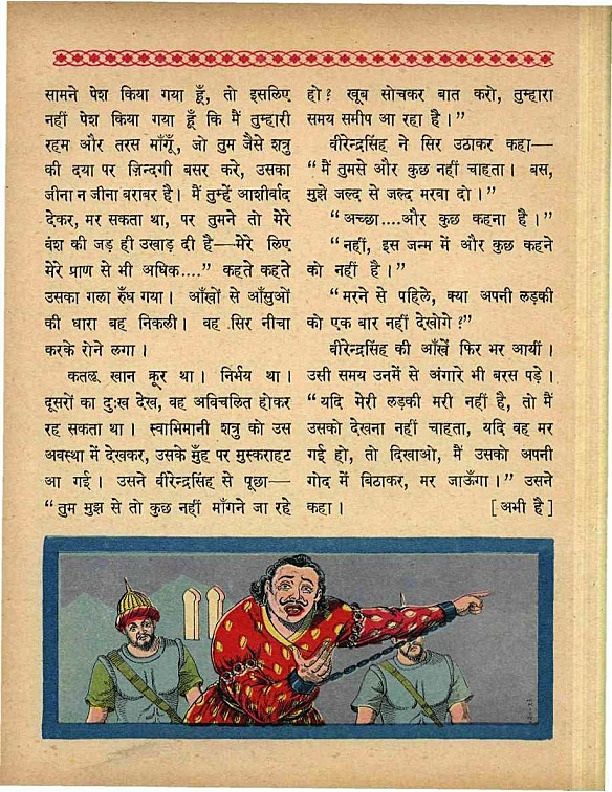 सामने पेश किया गया हूँ, तो इसलिए
नहीं पेश किया गया हूँ कि मैं तुम्हारी
रहम और तरस माँगूँ, जो तुम जैसे शत्रु
की दया पर ज़िन्दगी बसर करे, उसका
जीना न जीना बराबर है। मैं तुम्हें आशीर्वाद
देकर, मर सकता था, पर तुमने तो मेरे
वंश की जड़ ही उखाड़ दी है—मेरे लिए
मेरे प्राण से भी अधिक....” कहते कहते
उसका गला रुँध गया। आँखों से आँसुओं
की धारा बह निकली। वह सिर नीचा
करके रोने लगा।
कतलू खान क्रूर था। निर्भय था।
दूसरों का दुःख देख, वह अविचलित होकर
रह सकता था। स्वाभिमानी शत्रु को उस
अवस्था में देखकर, उसके मुँह पर मुस्कराहट
आ गई। उसने वीरेन्द्रसिंह से पूछा—
“तुम मुझ से तो कुछ नहीं माँगने जा रहे
हो? खूब सोचकर बात करो, तुम्हारा
समय समीप आ रहा है।”
वीरेन्द्रसिंह ने सिर उठाकर कहा—
“मैं तुमसे और कुछ नहीं चाहता। बस,
मुझे जल्द से जल्द मरवा दो।”
“अच्छा....और कुछ कहना है।”
“नहीं, इस जन्म में और कुछ कहने
को नहीं है।”
“मरने से पहिले, क्या अपनी लड़की
को एक बार नहीं देखोगे?”
वीरेन्द्रसिंह की आँखें फिर भर आयीं।
उसी समय उनमें से अंगारे भी बरस पड़े।
“यदि मेरी लड़की मरी नहीं है, तो मैं
उसको देखना नहीं चाहता, यदि वह मर
गई हो, तो दिखाओ, मैं उसको अपनी
गोद में बिठाकर, मर जाऊँगा।” उसने
कहा। [अभी है]